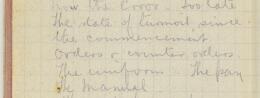 now the Corps. Too late
the state of turmoil since
the commencement
Orders & counter orders.
The uniform The pay
The Manual